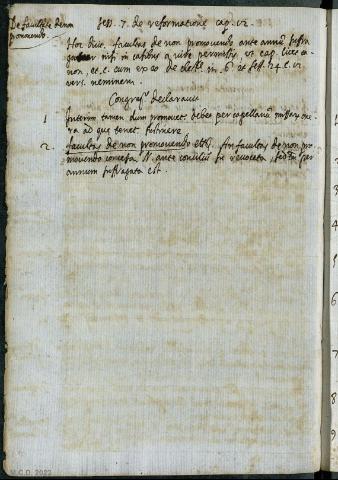 De facultate de non
promovendo.
sess. 7. de reformatione cap. 12.
Hoc duo. facultas de non promovendo ante annum suffra
nisi in casibus a iure permissis, ut cap. licet ca
non, et c. cum ex eo de elect. in 6. et sess. 24. c. 12
vers. neminem.
Congreg. declaravit
1 Interim tamen dum promovet. debet per capellanum missas
ad que tenet.
2. facultas de non promovendo etc. An facultas de non pro
movendo concessa N. ante concilium sit revocata, sed per
annum suffragata est.
M.C.D. 2022
1
2
3
4
5
6
7
8
9